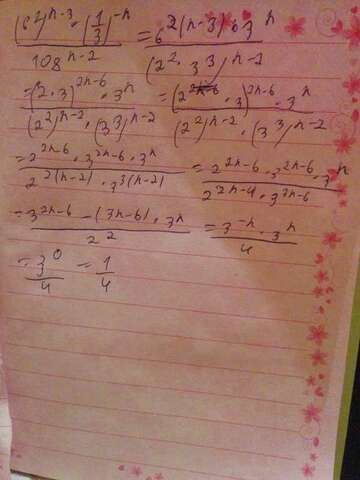 (6²)ⁿ⁻³ · (1/3)⁻ⁿ / 108ⁿ⁻² = 6²⁽ⁿ⁻³⁾ · 3ⁿ / (2² · 3³)ⁿ⁻²
= (2 · 3)²ⁿ⁻⁶ · 3ⁿ / (2²)ⁿ⁻² · (3³)ⁿ⁻² = (2 · 3)²ⁿ⁻⁶ · 3ⁿ / (2²)ⁿ⁻² · (3³)ⁿ⁻²
= 2²ⁿ⁻⁶ · 3²ⁿ⁻⁶ · 3ⁿ / 2²⁽ⁿ⁻²⁾ · 3³⁽ⁿ⁻²⁾ = 2²ⁿ⁻⁶ · 3²ⁿ⁻⁶ · 3ⁿ / 2²ⁿ⁻⁴ · 3³ⁿ⁻⁶
= 3²ⁿ⁻⁶ ⁻ ⁽³ⁿ⁻⁶⁾ · 3ⁿ / 2² = 3⁻ⁿ · 3ⁿ / 4
= 3⁰ / 4 = 1 / 4